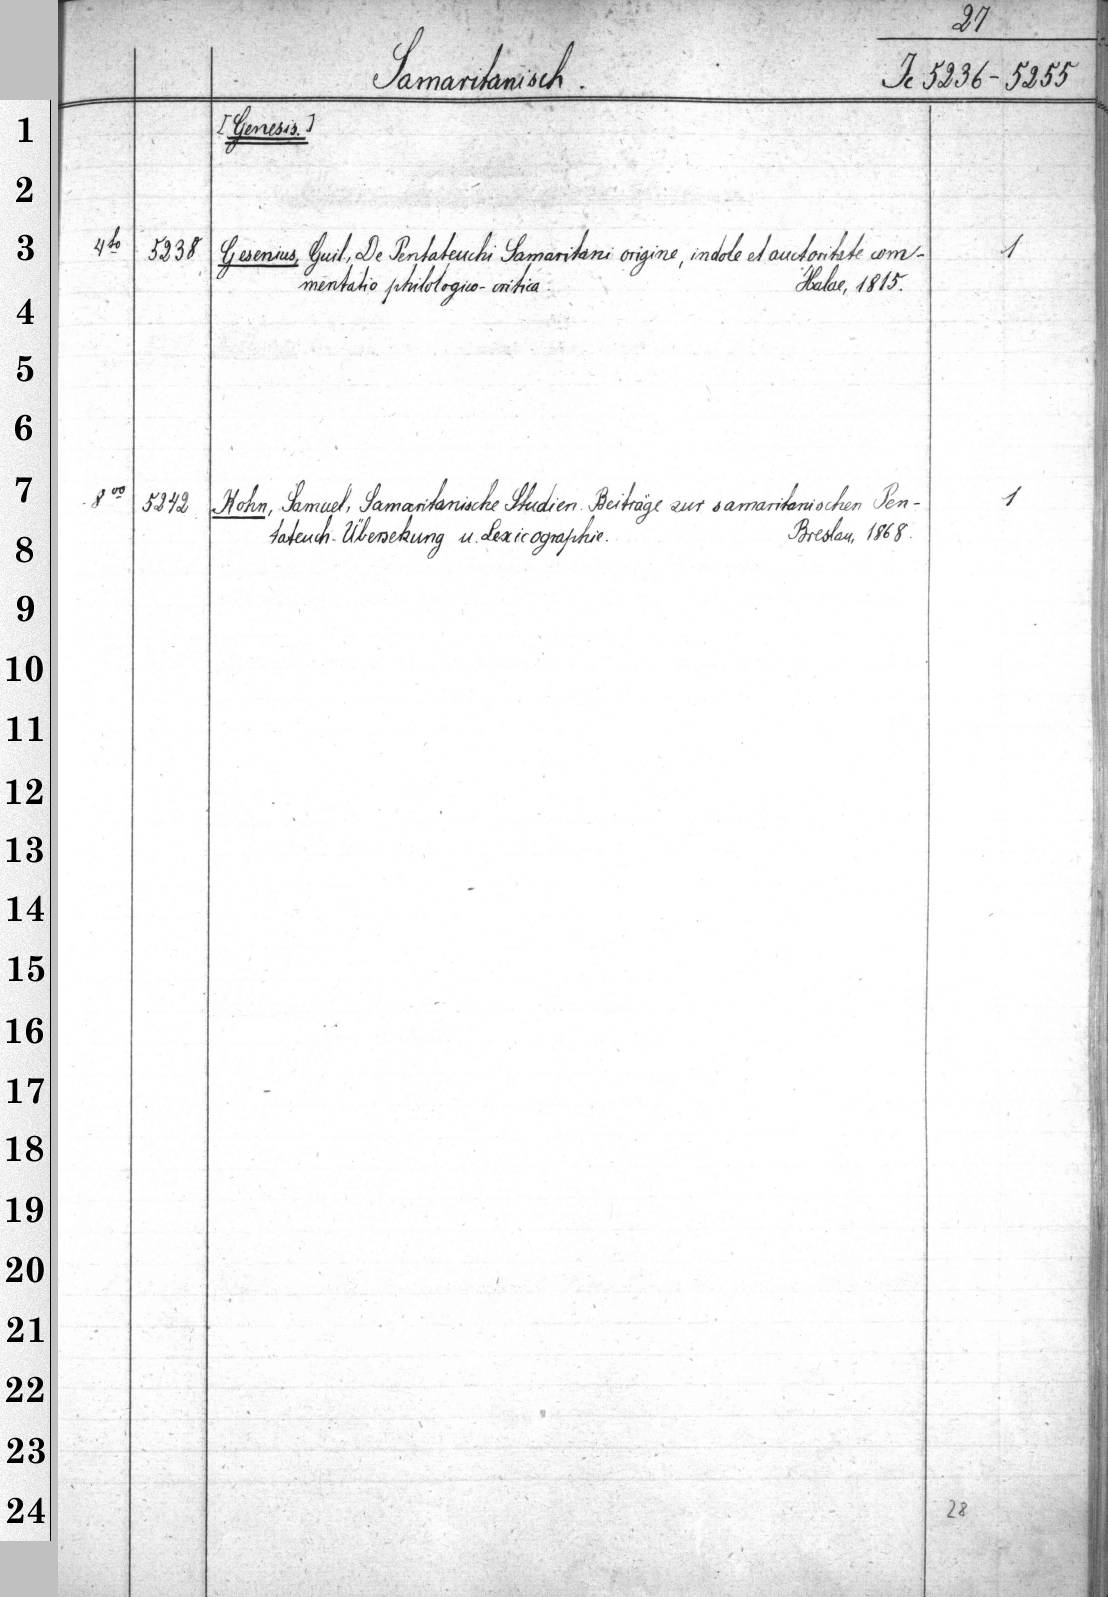 27
Samaritanisch.
Ic 5236-5255
1
[Genesis.]
2
3
4to 5238 Gesenius, Guil., De Pentateuchi Samaritani origine, indole et auctoritate com- 1
mentatio philologico-critica. Halae, 1815.
4
5
6
7
8vo 5242 Kohn, Samuel, Samaritanische Studien. Beiträge zur samaritanischen Pen- 1
tateuch-Übersetzung u. Lexicographie. Breslau, 1868.
8
9
10
11
12
13
14
15
16
17
18
19
20
21
22
23
24
28